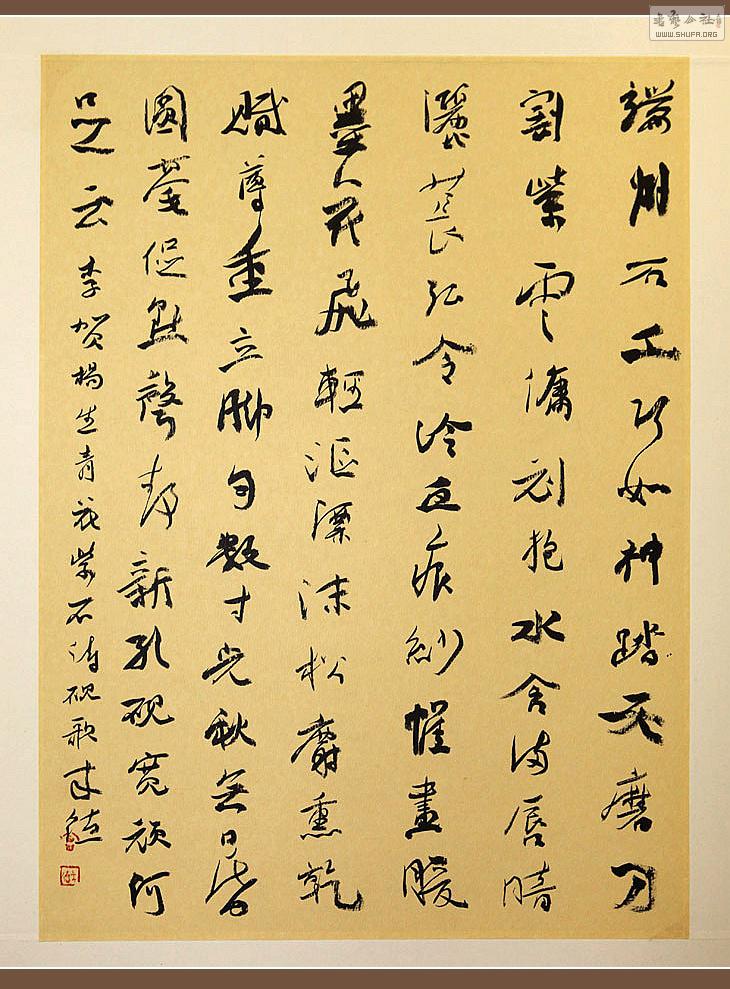 端州石工巧如神踏天磨刀
割紫雲傭刓抱水含滿唇暗
灑萇弘令冷血痕紗帷晝暖
墨花飛輕漚漂沫松麝熏乾
膩薄重立腳勻數寸光秋無日昏
圓毫促點聲靜新孔硯寬頑何
足云 李賀楊生青花紫石詩硯歌
书艺公社
WWW.SHUFA.ORG